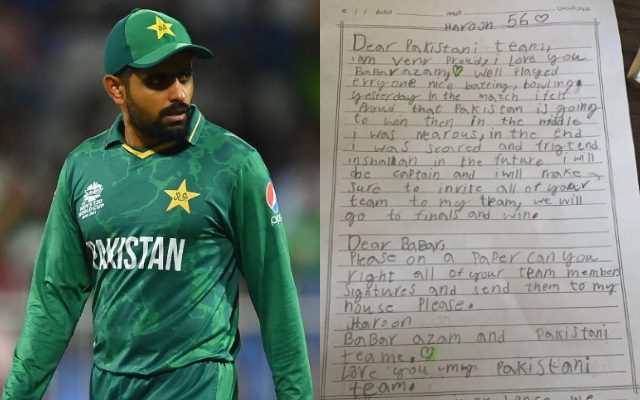 MEN'S T20
WORLD CUP
pepsi
PAKISTAN
HAROON 56
Dear Pakistani team,
i am very proud, i love you
BaBar azam, well played
erryone nice batting, bowling.
yesterday in the match i felt
Proud that Pakistan is going
to win then in the middle
i was nearous, in the end
i was scared and frigtend
inshallah in the future i will
be captain and i will make
sure to invite all of your
team to my team, we will
go to finals and win.
Dear BaBar,
Please on a Paper can you
right all of your team members
signtures and send them to my
house Please.
Haroon
BaBar azam and Pakistani
teame.
love you my Pakistani
team.